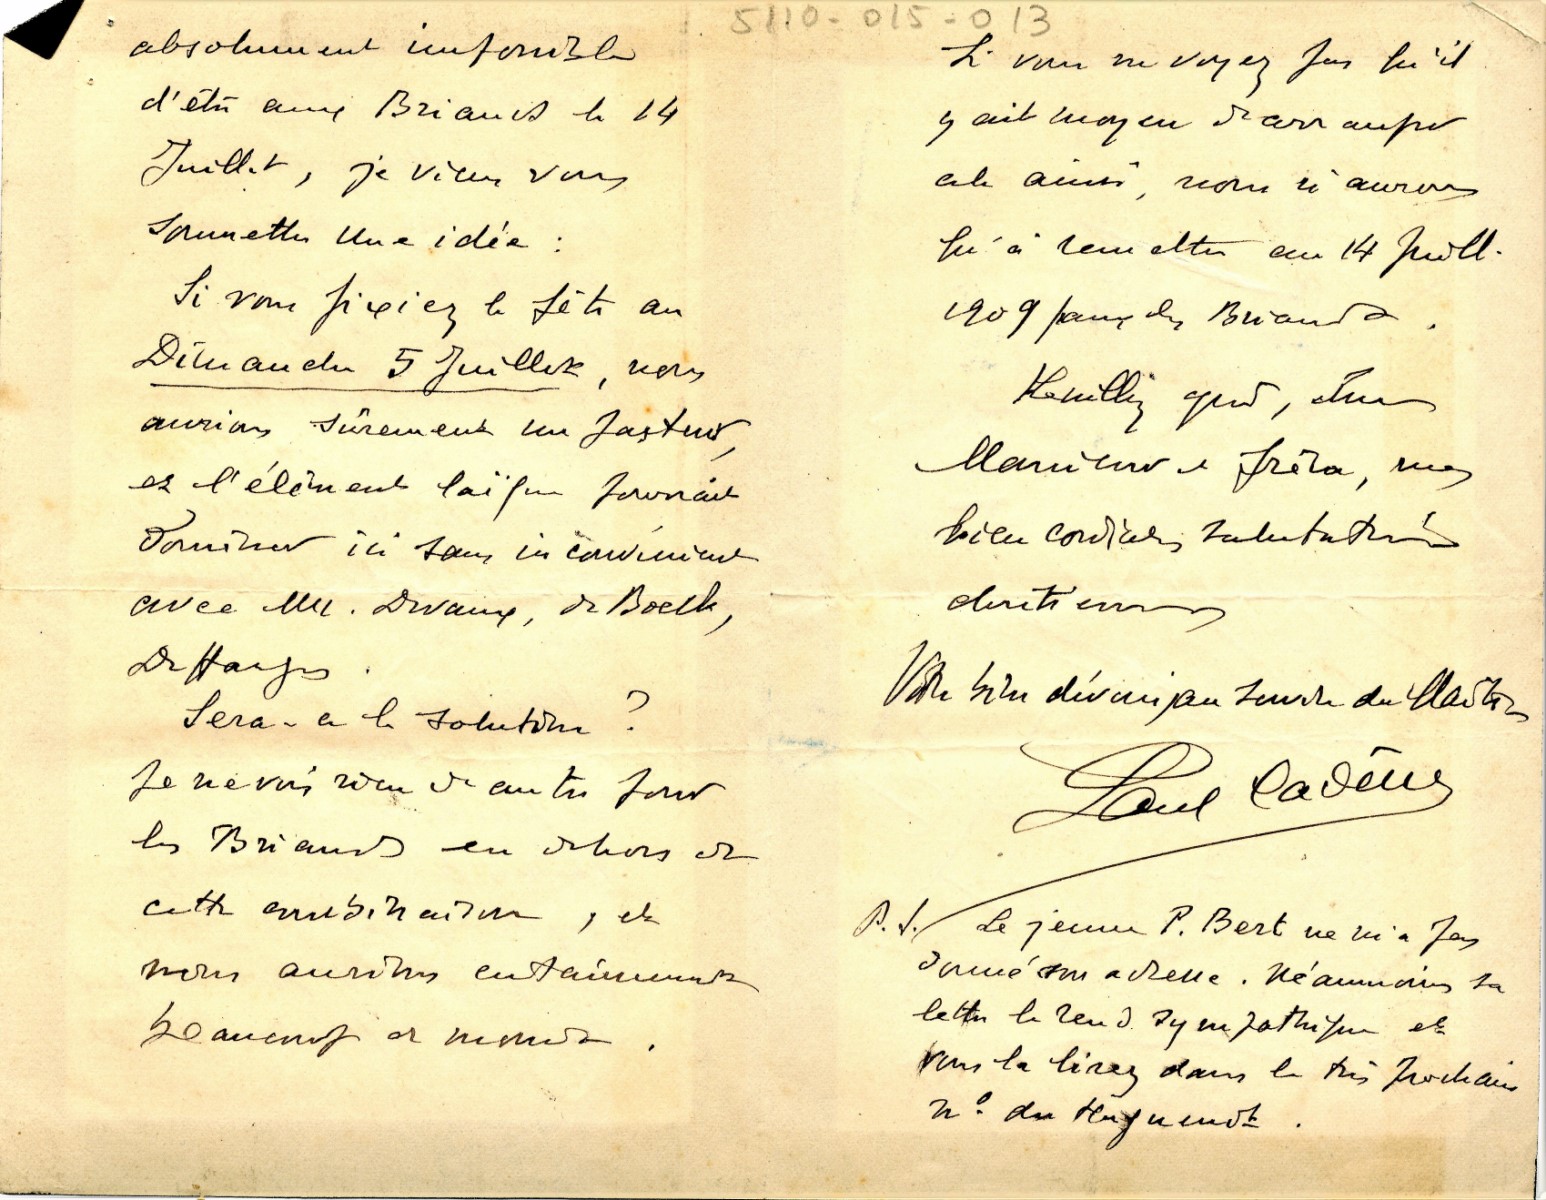 5110-015-013
absolument impossible
d'être aux Briands le 14
Juillet, je viens vous
soumettre une idée :
Si vous fixiez la fête au
Dimanche 5 Juillet, nous
aurions sûrement un pasteur,
et l'élément laïque pourrait
dominer ici sans inconvénient
avec MM. Devaux, de Boeck,
Desfarges.
Sera-ce la solution ?
Je ne vois rien d'autre pour
les Briands en dehors de
cette combinaison, et
nous aurions certainement
beaucoup de monde.
Si vous ne voyez pas qu'il
y ait moyen d'arranger
cela ainsi, nous n'aurons
qu'à remettre au 14 Juill.
1909 pour les Briands.
Veuillez agréer, cher
Monsieur et frère, mes
bien cordiales salutations
chrétiennes
Votre bien dévoué au service du Maître
Paul Cadène
P. S. Le jeune P. Bert ne m'a pas
donné son adresse. Néanmoins sa
lettre le rend sympathique et
vous la lirez dans le très prochain
n° du Huguenot.